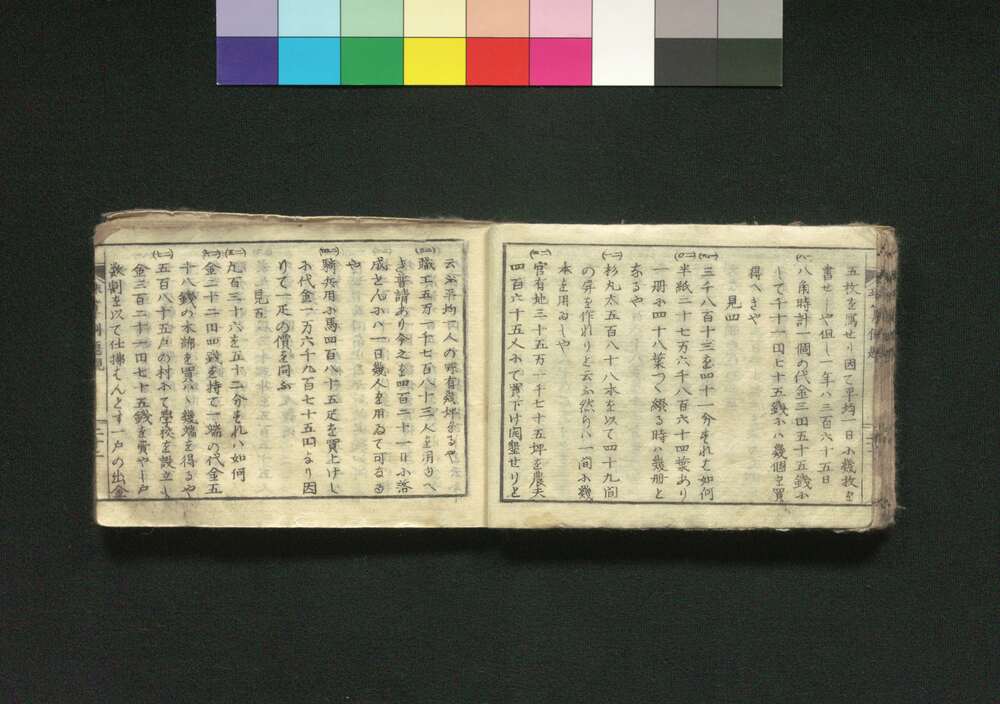 五枚を寫せり因て平均一日小幾枚を
書せしや但し一年ハ三百六十五日
(八)
八角時計一個の代金三円五十五銭小
して千十一円七十五銭小ハ幾個を買
得へきや
見四
(九)
三千八百十三を四十一分すれは如何
(一〇)
半紙二十七万六千八百六十四葉あり
一冊小四十八葉つゝ綴る時ハ幾冊と
なるや
(一一)
杉丸太五百八十八本を以て四十九間
の屏を作れりと云ふ然らハ一間小幾
本を用ゐしや
(一二)
官有地三十五万一千七十五坪を農夫
四百六十五人小て買下け開墾せりと
云ふ平均一人の所有幾坪なるや
職工五万一千七百八十三人を用ゆへ
き普請あり今之を四百二十一日小落
成せんふハ一日幾人を用ゐて可なる
や
(一四)
騎兵用小馬四百八十五疋を買上けし
小代金一万六千九百七十五円より因
りて一疋の價を問ふ
見五
九百三十六を五十二分すれハ如何
金二十二円四銭を持て一端の代金五
十八銭の木綿を買ハゝ幾端を得るや
五百八十五戸の村小て學校を設立し
金三百二十一円七十五銭を費や一戸
数割を以て仕拂はんとす一戸の出金